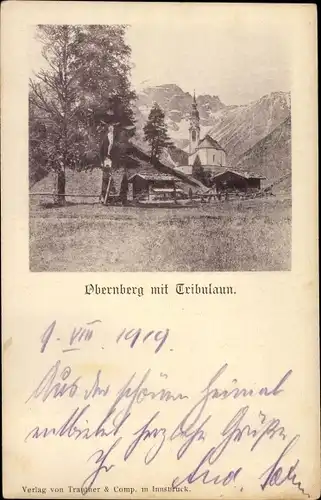 Obernberg mit Tribulaun.
9. VIII 1919
Aus der schönen Heimat
entbietet herzliche Grüße
Ihr And
Verlag von Tratner & Comp. in Innsbruck.